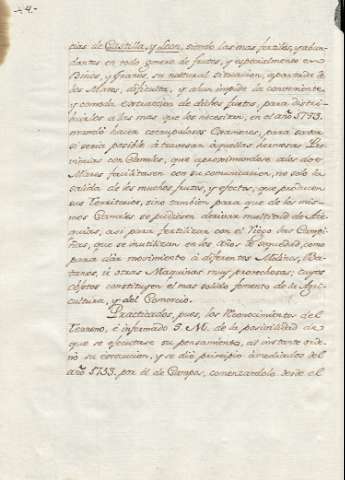 4.
cias de Castilla, y Leon, siendo las mas fertiles, y abun-
dantes en todo genero de frutos, y especialmente en
Vinos, y Granos, su natural situacion, apartada de
los Mares, dificulta, y aun impide la conveniente,
y comoda extraccion de dichos frutos, para distri-
buirlos a las mas que los necesitan, en el año 1753.
mandó hacer escrupulosos Examenes, para saver
si seria posible atravesar aquellas hermosas Pro-
vincias con Canales, que aproximandose a los dos
Mares facilitasen con su comunicacion, no solo la
salida de los muchos frutos, y efectos, que producen
sus Territorios, sino tambien para que de los mis-
mos Canales se pudiesen derivar multitud de Ace-
quias, asi para fertilizar con el Riego las Campi-
ñas, que se inutilizan en los años de sequedad, como
para dár movimiento á diferentes Molinos, Ba-
tanes, ú otras Maquinas muy provechosas, cuyos
objetos constituyen el mas solido fomento de la Agri-
cultura, y del Comercio.
Practicados, pues, los Reconocimientos del
Terreno, é informado S. M. de la posibilidad de
que se efectuase su pensamiento, al instante orde-
nó su execucion, y se dió principio á mediados del
año 1753. por él de Campos, comenzandolo desde el